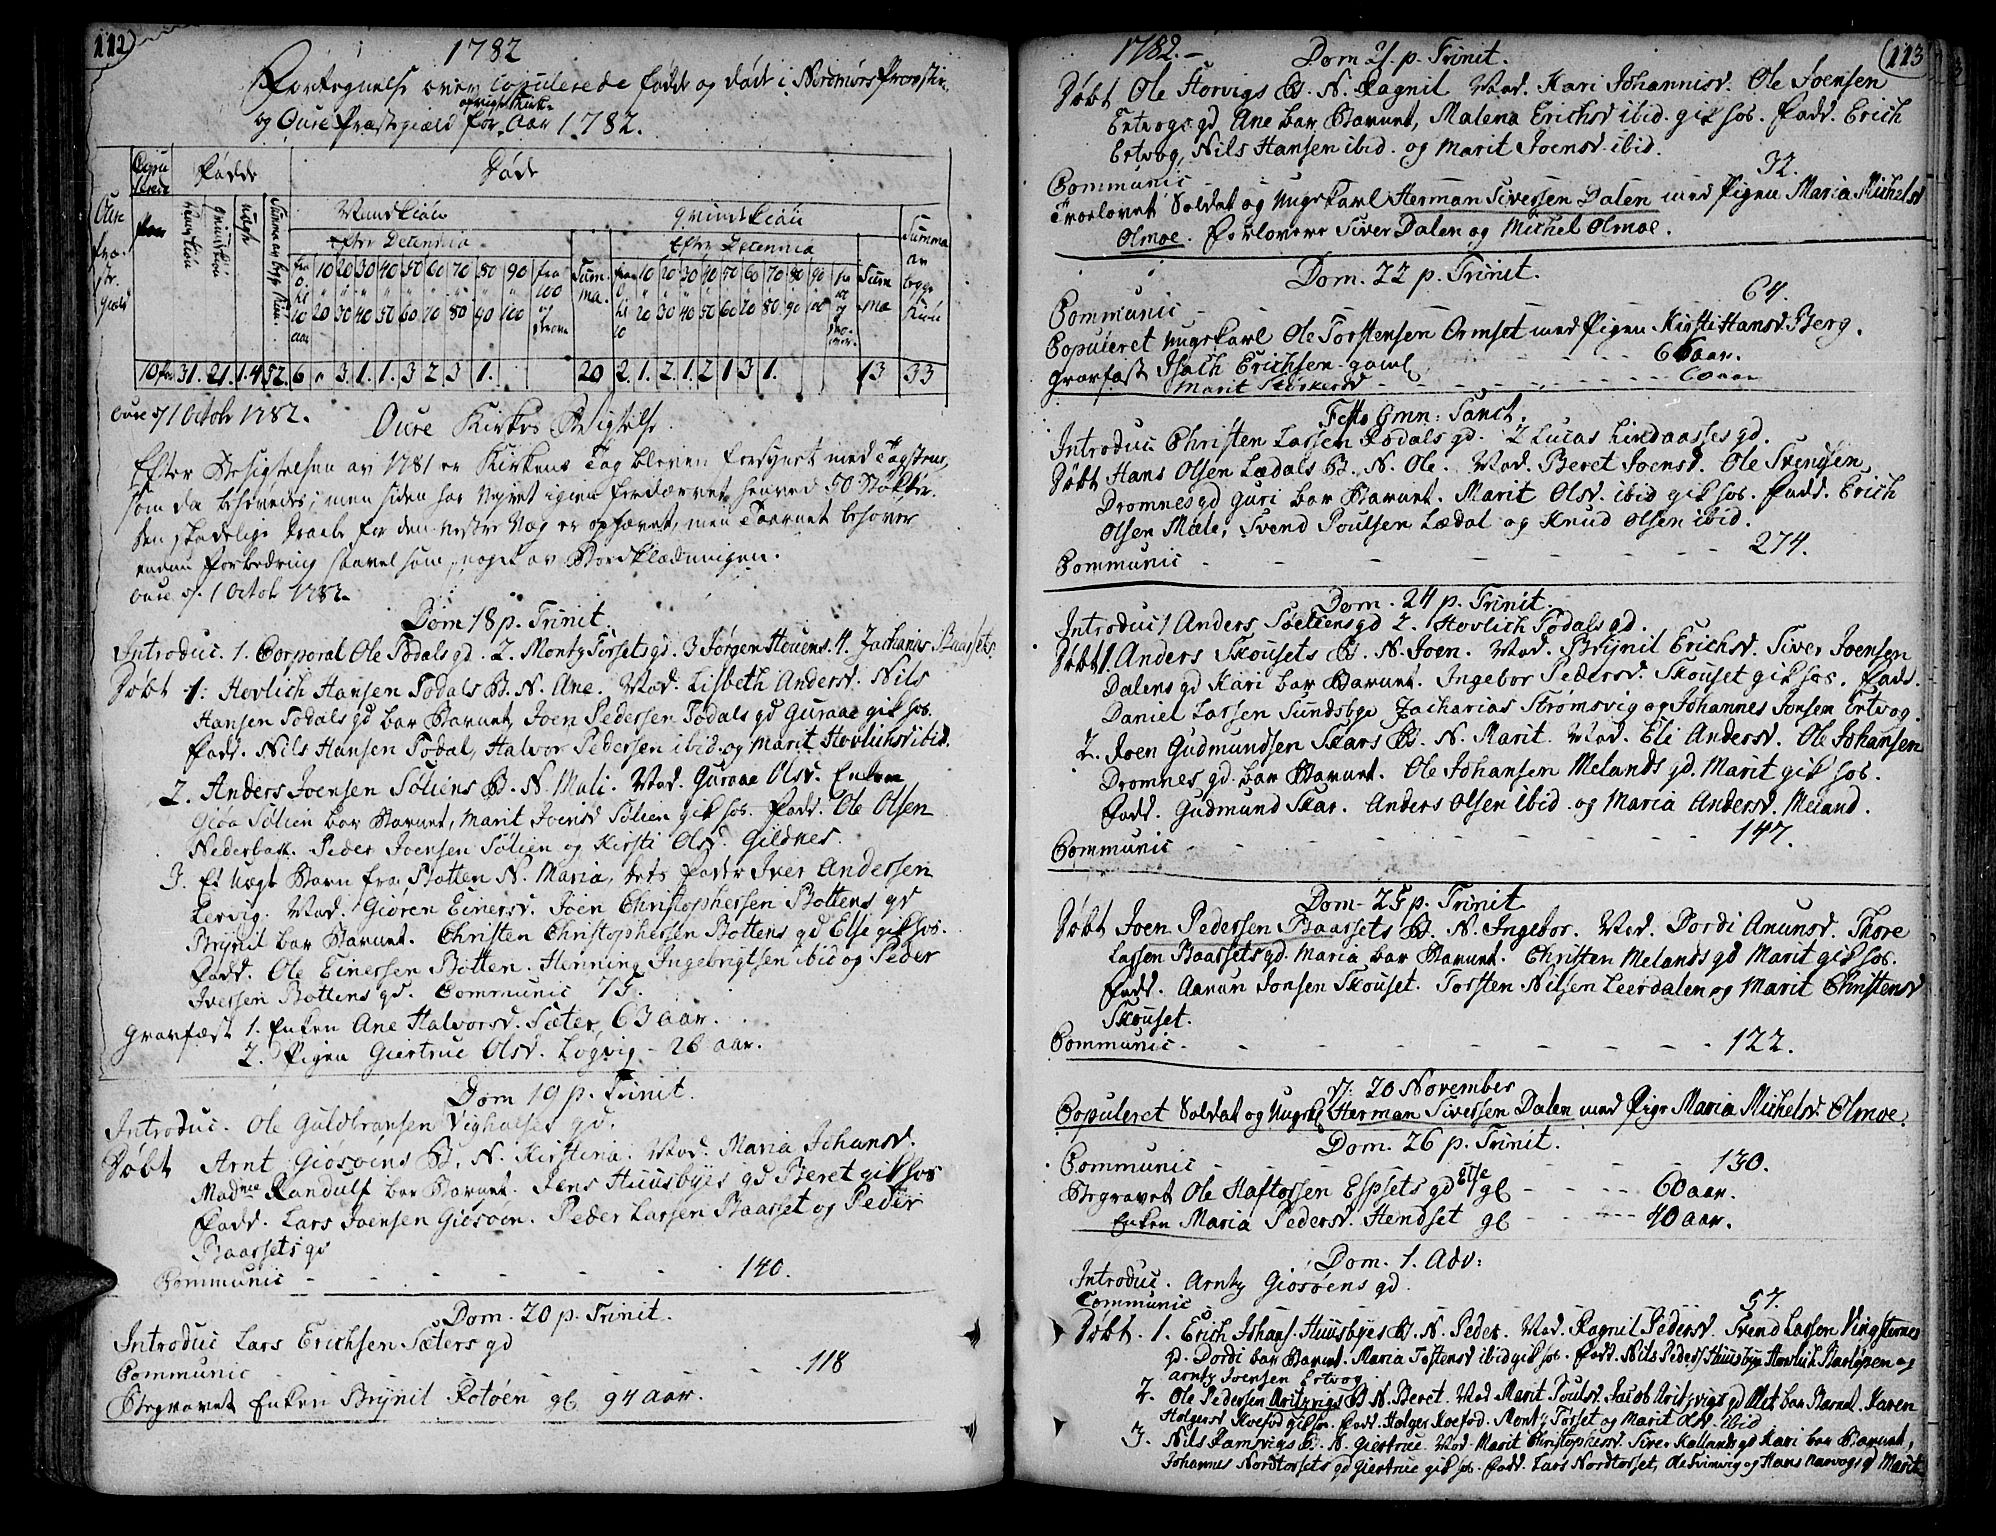 112
1782
Fortegnelse over Copulerede fødde og døde i Nordmørs Provstie
afvigte Kirke
og Oure Præstegield for Aar 1782.
Copulerede Fødde Døde
Mandkiøn Qvindekiøn Summa
Efter Decennia Efter Decennia
10 20 30 40 50 60 70 80 90 fra 100 Summa. 10 20 30 40 50 60 70 80 90 Summa
20 30 40 50 60 70 80 90 100 20 30 40 50 60 70 80 90 100
10 par 31. 21. 1. 4 52. 6 " 3. 1. 1. 3 2 3 1. 20 2. 1. 2. 1. 2 1 3 1. 13 33
Oure d. 1 Octob 1782. Oure Kirkes Besigtelse.
Efter Besigtelsen av 1781 er Kirkens Tag bleven forsynet med Tagsteen,
som da behøvedes; men siden har Veyret igien fordærvet henved 50 Støkker.
den skadelige Draabe for den Vestre Væg er ophævet, men Taarnet behøver
endnu Forbedring saavelsom noget av Bordklædningen.
Oure d. 1 Octob 1782.
Dom 18 p. Trinit.
Introduc. 1. Corporal Ole Todals gd. 2. Montz Torsets gd. 3 Jørgen Houens. 4. Zacharias Baassets
Døbt 1: Hovlich Hansen Todals B. N. Ane. Mod. Lisbeth Andersd. Nils
Hansen Todals gd bar Barnet, Joen Pedersen Todals gd Guraae gik hos.
Fadd. Nils Hansen Todal, Halvor Pedersen ibid. og Marit Hovlichsd ibid.
2. Anders Joensen Søliens B. N. Mali. Mod. Guraae Olsd. Enken
Giøa Sølien bar Barnet, Marit Joensd Sølien gik hos. Fadd. Ole Olsen
Nederbak. Peder Joensen Sølien og Kirsti Olsd. Gildnes.
3. Et Uægt Barn fra Botten N. Maria, dets Fader Iver Andersen
Lervig. Mod. Giøren Einersd. Joen Christophersen Bottens gd
Brynil bar Barnet. Christen Christophersen Bottens gd Else gik hos.
Fadd. Ole Einersen Botten. Henning Ingebrigtsen ibid og Peder
Iversen Bottens gd. Communic 75.
Gravfæst 1. Enken Ane Halvorsd. Sæter, 63 aar.
2. Pigen Giertrue Olsd. Løgvig - 26 aar.
Dom 19 p. Trinit.
Introduc. Ole Guldbransen Vighalses gd.
Døbt Arnt Giøsøens B. N. Kirstina. Mod. Maria Johansd.
Madme Randulf bar Barnet. Jens Huusbyes gd Beret gik hos
Fadd. Lars Joensen Giøsøen. Peder Larsen Baasset og Peder
Baassets gd
Communic - - - - 140.
Dom. 20 p. Trinit.
Introduc Lars Erichsen Sæters gd
Communic - - - - 118
Begravet Enken Brynil Rotøen gl 94 aar.
113
1782. - Dom 21. p. Trinit.
Døbt Ole Horvigs B. N. Ragnil Mod. Kari Johannisd. Ole Joensen
Ertvogs gd Ane bar Barnet, Malena Erichsd ibid. gik hos. Fadd. Erich
Ertvog, Nils Hansen ibid. og Marit Joensd. ibid.
Communic - 32.
Troelovet Soldat og Ungkarl Herman Siversen Dalen med Pigen Maria Michelsd
Olmoe. Forlovere Siver Dalen og Michel Olmoe.
Dom. 22 p. Trinit.
Communic - - 64.
Copuleret Ungkarl Ole Torstensen Ormset med Pigen Kirsti Hansd. Berg.
Gravfæst Isach Erichsen - gaml - - - 66 aar.
Marit Sterkersd - - - - 60 aar
Festo Omn: Sanct.
Introduc: Christen Larsen Rodals gd. 2 Lucas Lindaasses gd.
Døbt Hans Olsen Lædals B. N. Ole. Mod. Beret Joensd. Ole Svendsen
Dromnes gd Guri bar Barnet. Marit Olsd. ibid gik hos. Fadd. Erich
Olsen Mæle, Svend Poulsen Lædal og Knud Olsen ibid.
Communic - - - - 274.
Dom. 24 p. Trinit.
Introduc 1 Anders Søeliens gd 2. Hovlich Todals gd.
Døbt 1. Anders Skousets B. N. Joen. Mod. Brynil Erichsd. Siver Joensen
Dalens gd Kari bar Barnet. Ingebor Pedersd. Skouset gik hos. Fadd.
Daniel Larsen Sundsbye Zacharias Strømsvig og Johannes Jonsen Ertvog.
2. Joen Gudmundsen Skars B. N. Marit. Mod. Eli Andersd. Ole Johansen
Dromnes gd. bar Barnet. Ole Johansen Melands gd. Marit gik hos.
Fadd. Gudmund Skar. Anders Olsen ibid. og Maria Andersd. Meland.
Communic - - - - 147.
Dom. 25 p. Trinit
Døbt Joen Pedersen Baassets B. N. Ingebor. Mod. Dordi Amunsd. Thore
Larsen Baassets gd. Maria bar Barnet. Christen Melands gd Marit gik hos.
Fadd. Aamun Jonsen Skouset. Torsten Nilsen Leerdalen og Marit Christensd
Skouset.
Communic - - - - 122.
d: 20 November
Copuleret Soldat og Ungkl Herman Siversen Dalen med Pige Maria Michelsd: Olmoe.
Dom. 26 p. Trinit.
Communic - - - - 130.
Begravet Ole Haftorsen Espsets gd Else gl - - - 60 aar.
Enken Maria Pedersd. Hendset gl - - - 40 aar.
Dom. 1. Adv:
Introduc. Arntz Giøsøens gd.
Communic 57.
Døbt. 1. Erich Johans. Huusbyes B. N. Peder. Mod. Ragnil Pedersd. Svend Larsen Vingsternes
gd. Dordi bar Barnet. Maria Tostensd ibid gik hos. Fadd. Nils Peders. Huusbye Hovlich og
Arntz Joensen Ertvog.
2. Ole Pedersen Aritzvigs B. N. Beret. Mod Marit Poulsd. Jacob Aritzvigs gd Alet bar Barnet. Karen
Holgersd Koefod gik hos. Fadd. Holger Koefod. Montz Torset og Marit Olsd. ibid
3. Nils Ramsvigs B. N. Giertrue. Mod. Marit Christophersd. Siver Kallands gd Kari bar Barnet,
Johannes Nordtorsets gd Giertrue gik hos. Fadd. Lars Nordtorset, Ole Svinvig og Hans gd Marit